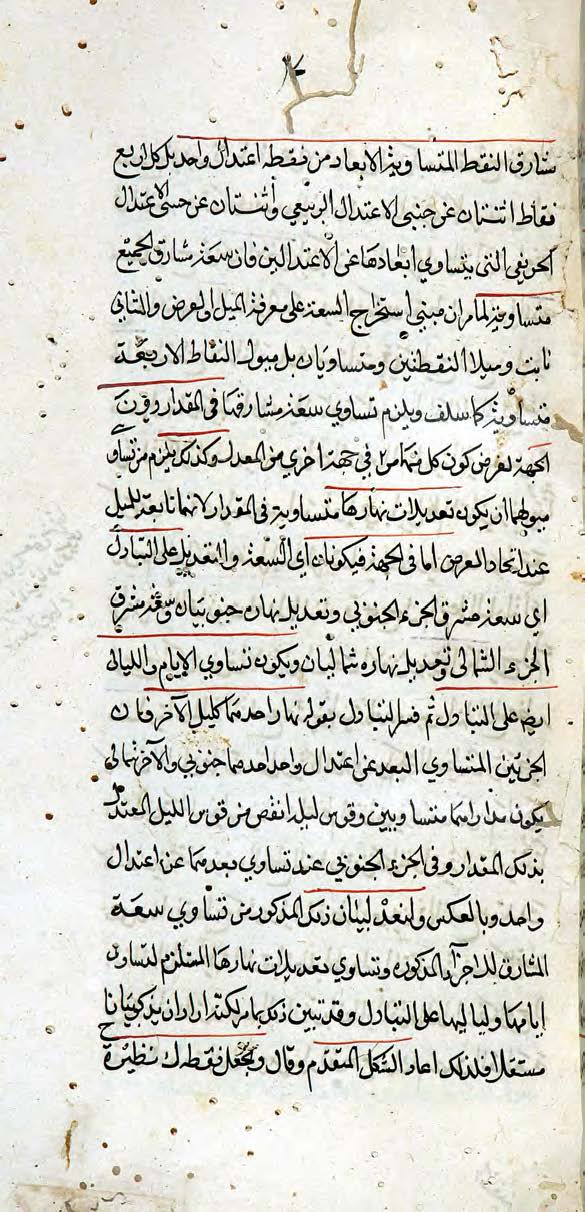 مشارق النقط المتساوية الابعاد من نقطه اعتدال واحد بل كل اربع
نقاط اثنتان عن جنبي الاعتدال الربيعي واثنتان عن جنبي الاعتدال
الخريفي التي يتساوي ابعادها عن الاعتدالين فان سعة مشارق الجميع
متساوية لما مر ان مبني استخراج السعة علي معرفة الميل والعرض والثاني
ثابت وميلا النقطتين متساويان بل ميول النقاط الاربعة
متساوية كما سلف ويلزم تساوي سعة مشارقها في المقدار دون
الجهة لفرض كون كل منهما في جهة اخري من المعدل وكذلك يلزم من تساوي
ميولهما ان يكون تعديلات نهارها متساوية في المقدار لانها تابعة للميل
عند اتحاد العرض اما في الجهة فيكونان اي السعة والتعديل علي التبادل
اي سعة مشرق الجزء الجنوبي وتعديل نهاره جنوبيان وسعة مشرق
الجزء الشمالي وتعديل نهاره شماليان ويكون تساوي الايام والليالي
ايضا علي التبادل ثم فسر التبادل بقوله نهار احدهما كليل الآخر فان
الجزئين المتساوي البعد عن اعتدال واحد احدهما جنوبي والآخر شمالي
يكون مداراهما متساويين وقوس ليله انقص من قوس الليل المعتدل
بذلك المقدار وفي الجزء الجنوبي عند تساوي بعدهما عن اعتدال
واحد وبالعكس ولنعد لبيان ذلك المذكور من تساوي سعة
المشارق للاجزآء المذكوره وتساوي تعديلات نهارها المستلزم لتساوي
ايامها ولياليها علي التبادل وقد تبين ذلك بما مر لكنه اراد ان يذكر بيانا
مستقلا فلذلك اعاد الشكل المتقدم وقال ونجعل نقطه ك نظيرة ح